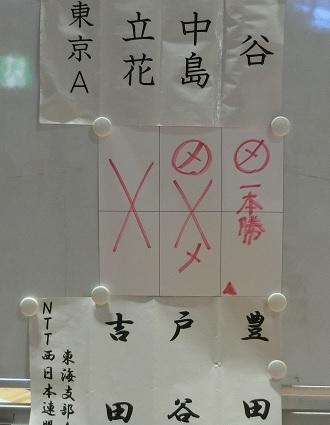 谷
中島
立花
東京A
メ
一本勝
メ
メ
豊田
戸谷
吉田
東海支部
NTT西日本連盟